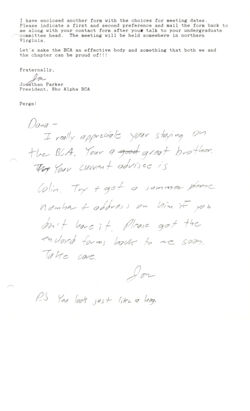 I have enclosed another form with the choices for meeting dates.
Please indicate a first and second preference and mail the form back to
me along with your contact form after you talk to your undergraduate
committee head. The meeting will be held somewhere in northern
Virginia.
Let's make the BCA an effective body and something that both we and
the chapter can be proud of!!!
Fraternally,
Jon
Jonathan Parker
President, Rho Alpha BCA
Perge!
Dana-
I really appreciate your staying on
the BCA. Your a great brother.
Your current advisee is
Colin. Try + get a summer phone
number + address on him if you
don't have it. Please get the
enclosed forms back to me soon.
Take care
Jon
PS You look just like a